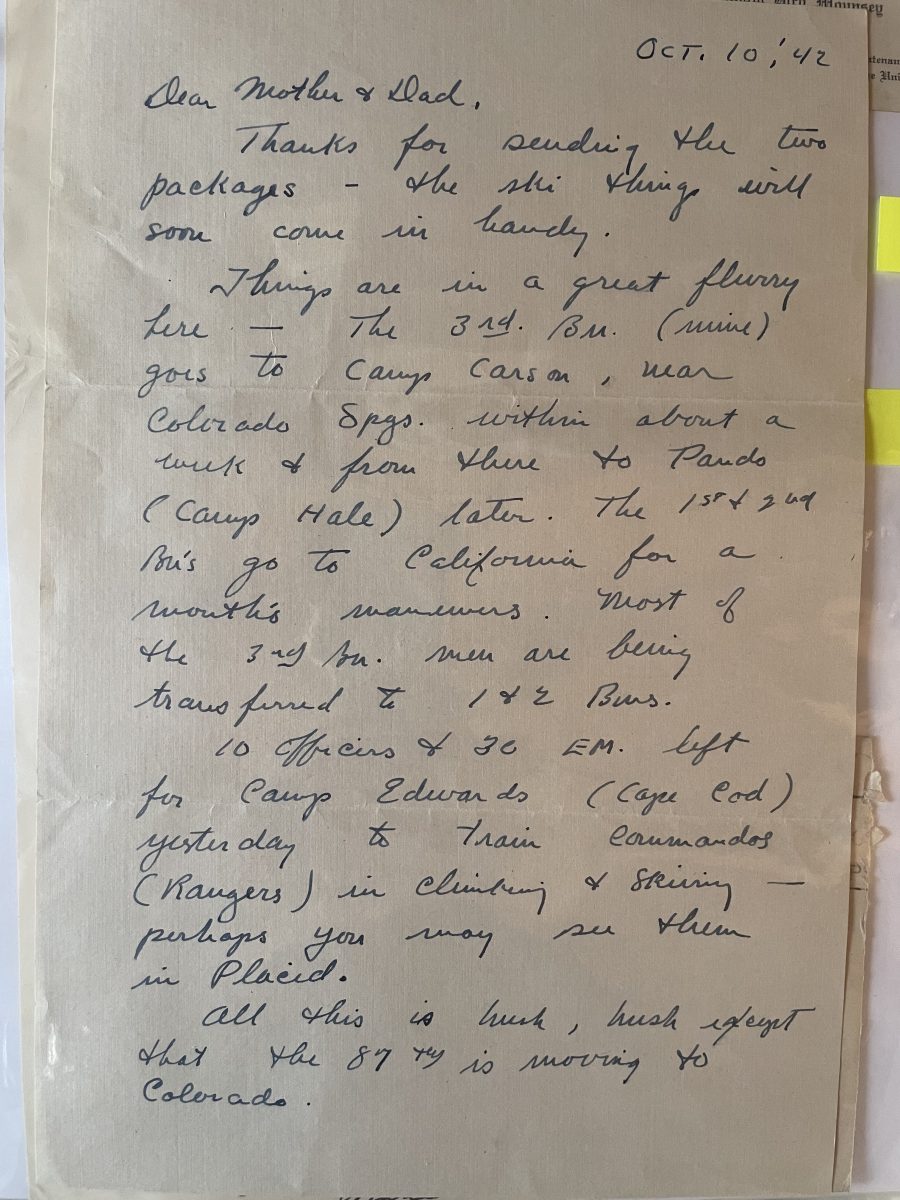 Mounsey
OCT. 10, '42
Dear Mother & Dad,
Thanks for sending the two
packages - the ski things will
soon come in handy.
Things are in a great flurry
here — The 3rd. Bn. (mine)
goes to Camp Carson, near
Colorado Spgs. within about a
week & from there to Pando
(Camp Hale) later. The 1st & 2nd
Bn's go to California for a
month's maneuvers. Most of
the 3rd Bn. men are being
transferred to 1 & 2 Bns.
10 Officers & 30 EM. left
for Camp Edwards (Cape Cod)
yesterday to train Commandos
(Rangers) in climbing & skiing —
perhaps you may see them
in Placid.
All this is hush, hush except
that the 87th is moving to
Colorado.